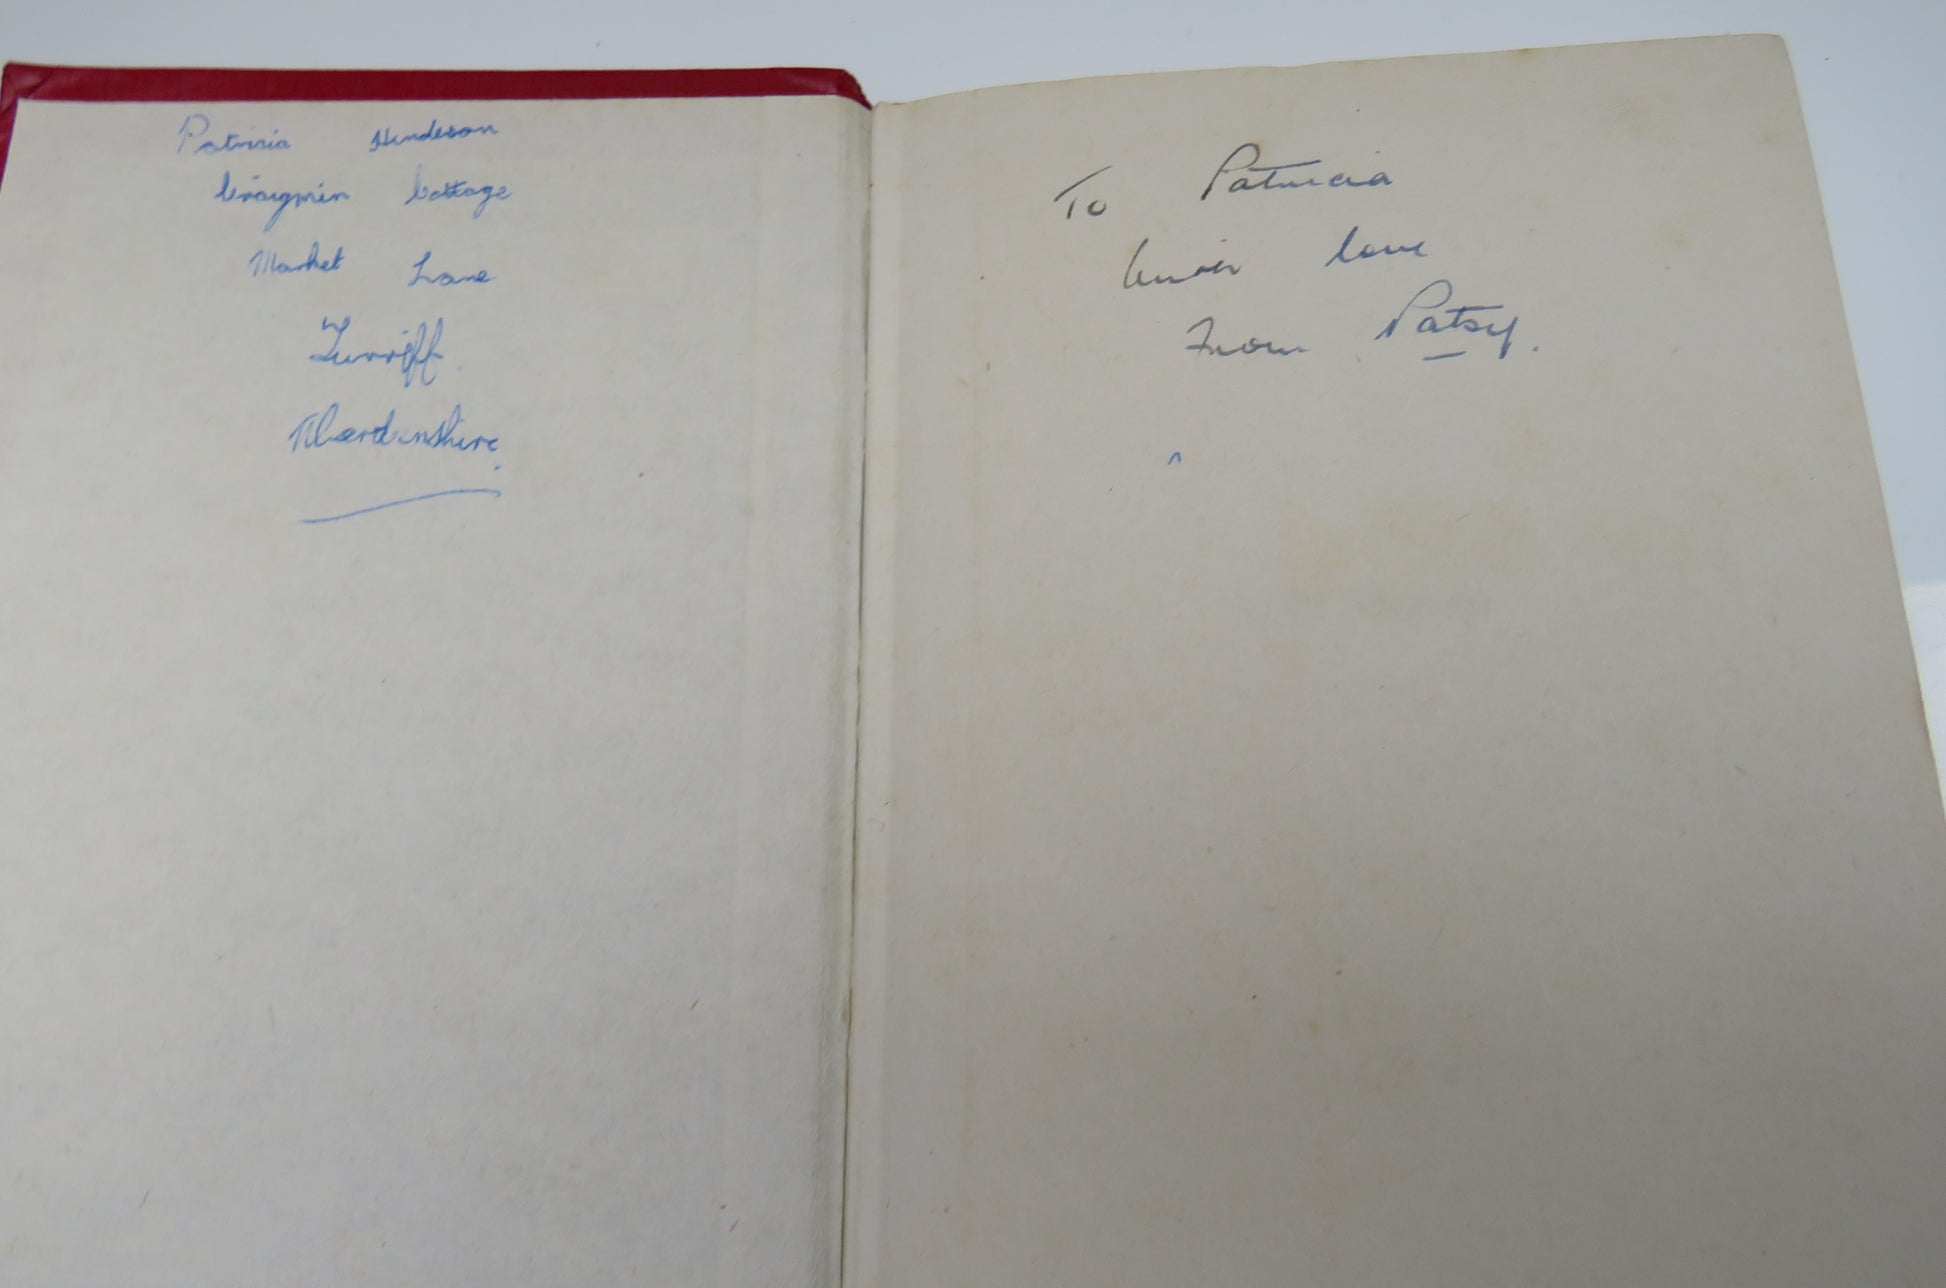 Patricia Henderson
Craigmin Cottage
Market Lane
Turriff
Aberdeenshire
To Patricia
With love
From Patsy.